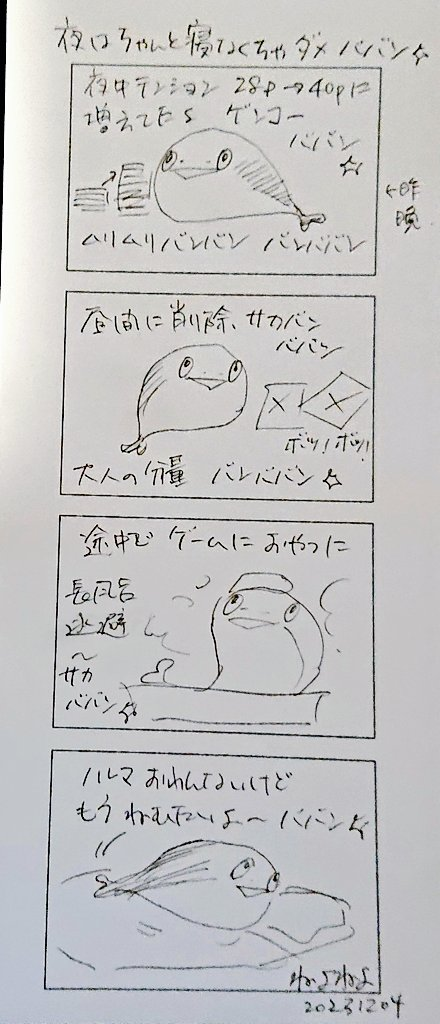 夜はちゃんと寝なくちゃダメ ババン☆
夜中テンション 28P→40Pに
増えてたら ゲンコー
ババン
☆
←昨
晩
ムリムリバンバン バンババン
昼間に削除、サカバン
ババン
ボツ!ボツ!
大人の分量 バンババン☆
途中で ゲームに おやつに
長風呂
逃避
〜
サカ
ババン☆
ハルマ おわんないけど
もう ねむたいよ〜 ババン☆
ねよねよ
20231204